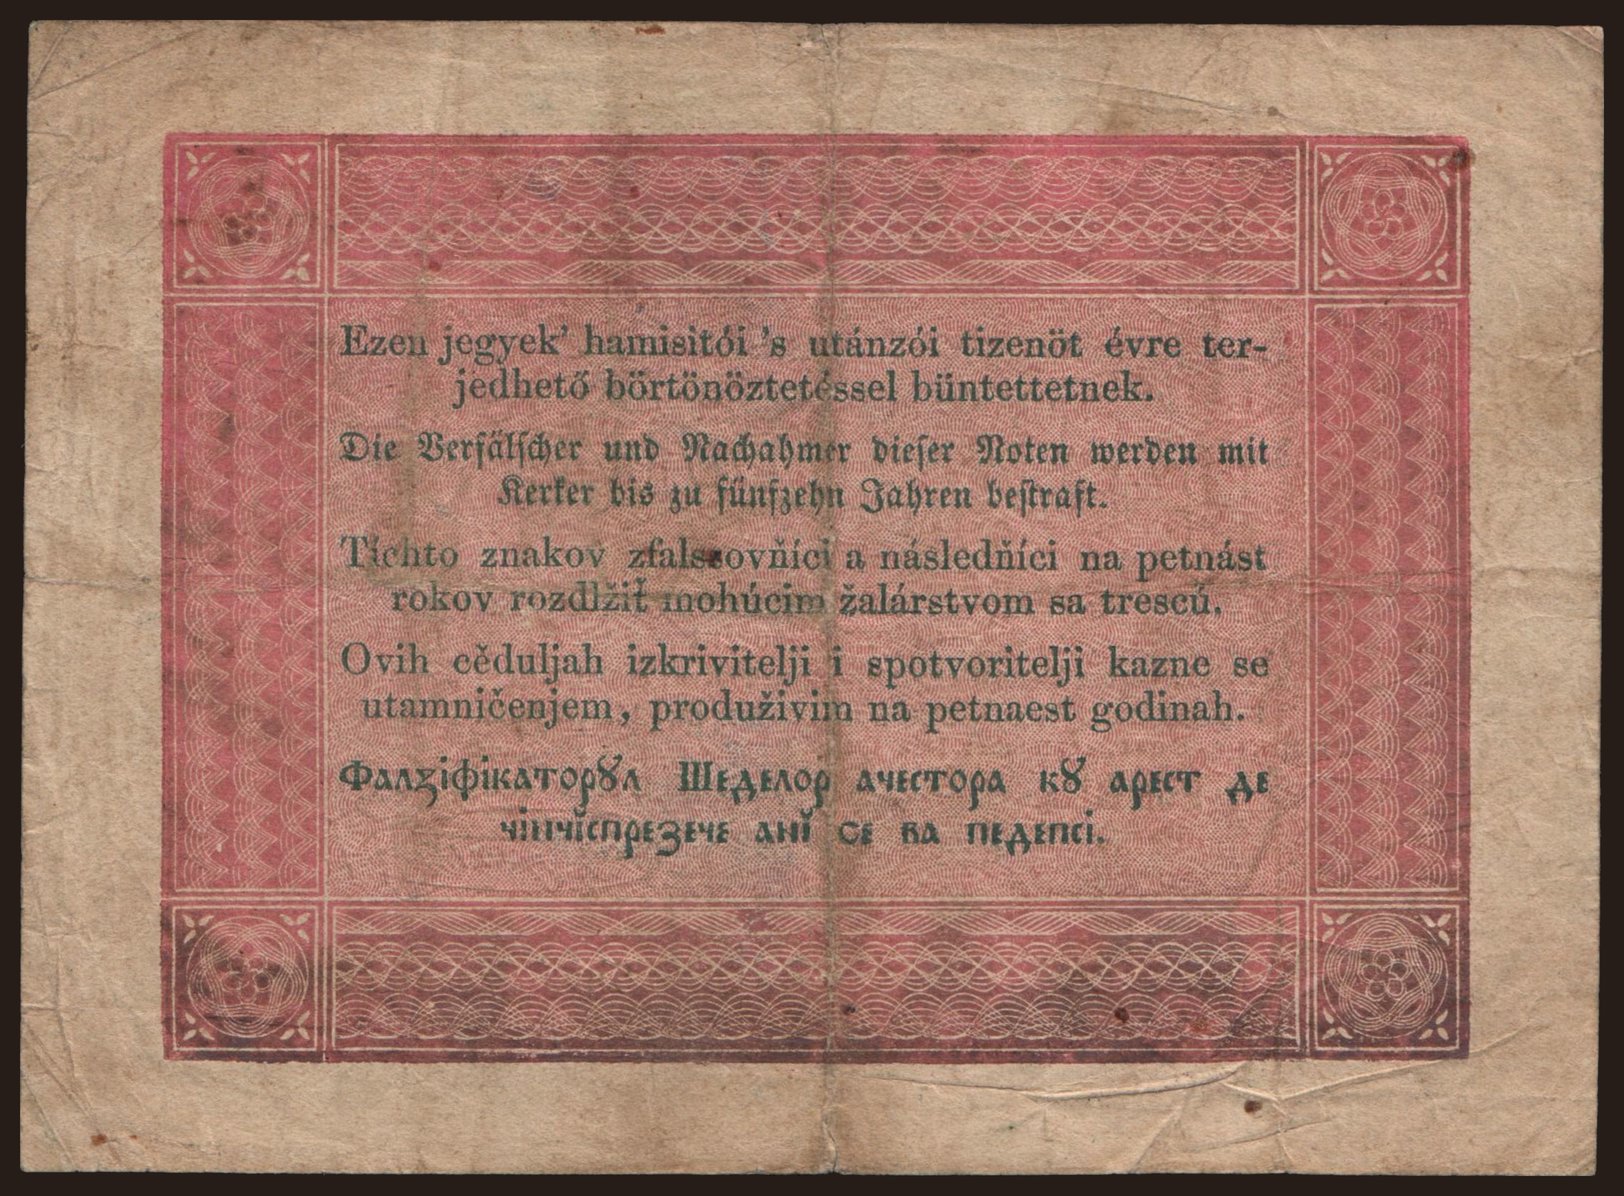 Ezen jegyek' hamisitói 's utánzói tizenöt évre ter-
jedhető börtönöztetéssel büntettetnek.
Die Verfälscher und Nachahmer dieser Noten werden mit
Kerker bis zu fünfzehn Jahren bestraft.
Tíchto znakov zfalssovňíci a následňíci na petnást
rokov rozdlžiť mohúcim žalárstvom sa trescú.
Ovih cěduljah izkrivitelji i spotvoritelji kazne se
utamničenjem, produživim na petnaest godinah.
Фалꙁіфікаторꙋл Шеделор ачестора кꙋ арест де
чінчĭспрезече анĭ се ва педепсі.